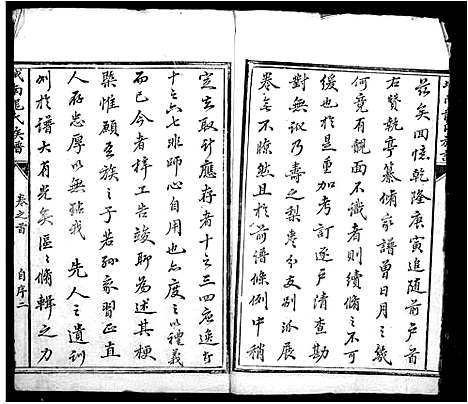 茲矣回憶乾隆庚寅追随前户首
右贊乾亭纂脩家譜曾日月之幾
何竟有覿面不識者則續脩之不可
緩也於是重加考訂逐户清查勘
對無訛乃壽之梨棗分支别派展
卷無不瞭然且於前譜條例中稍
定去取計應存者十之三四应逸者
十之六七非师心自用也亦度之以禮義
而已今者梓工告竣聊為述其梗
槩惟願吾族之子若孫家習正直
人存忠厚以無玷我 先人之遺訓
則於譜大有光矣區區脩輯之力
氏族譜
卷之首
自序二